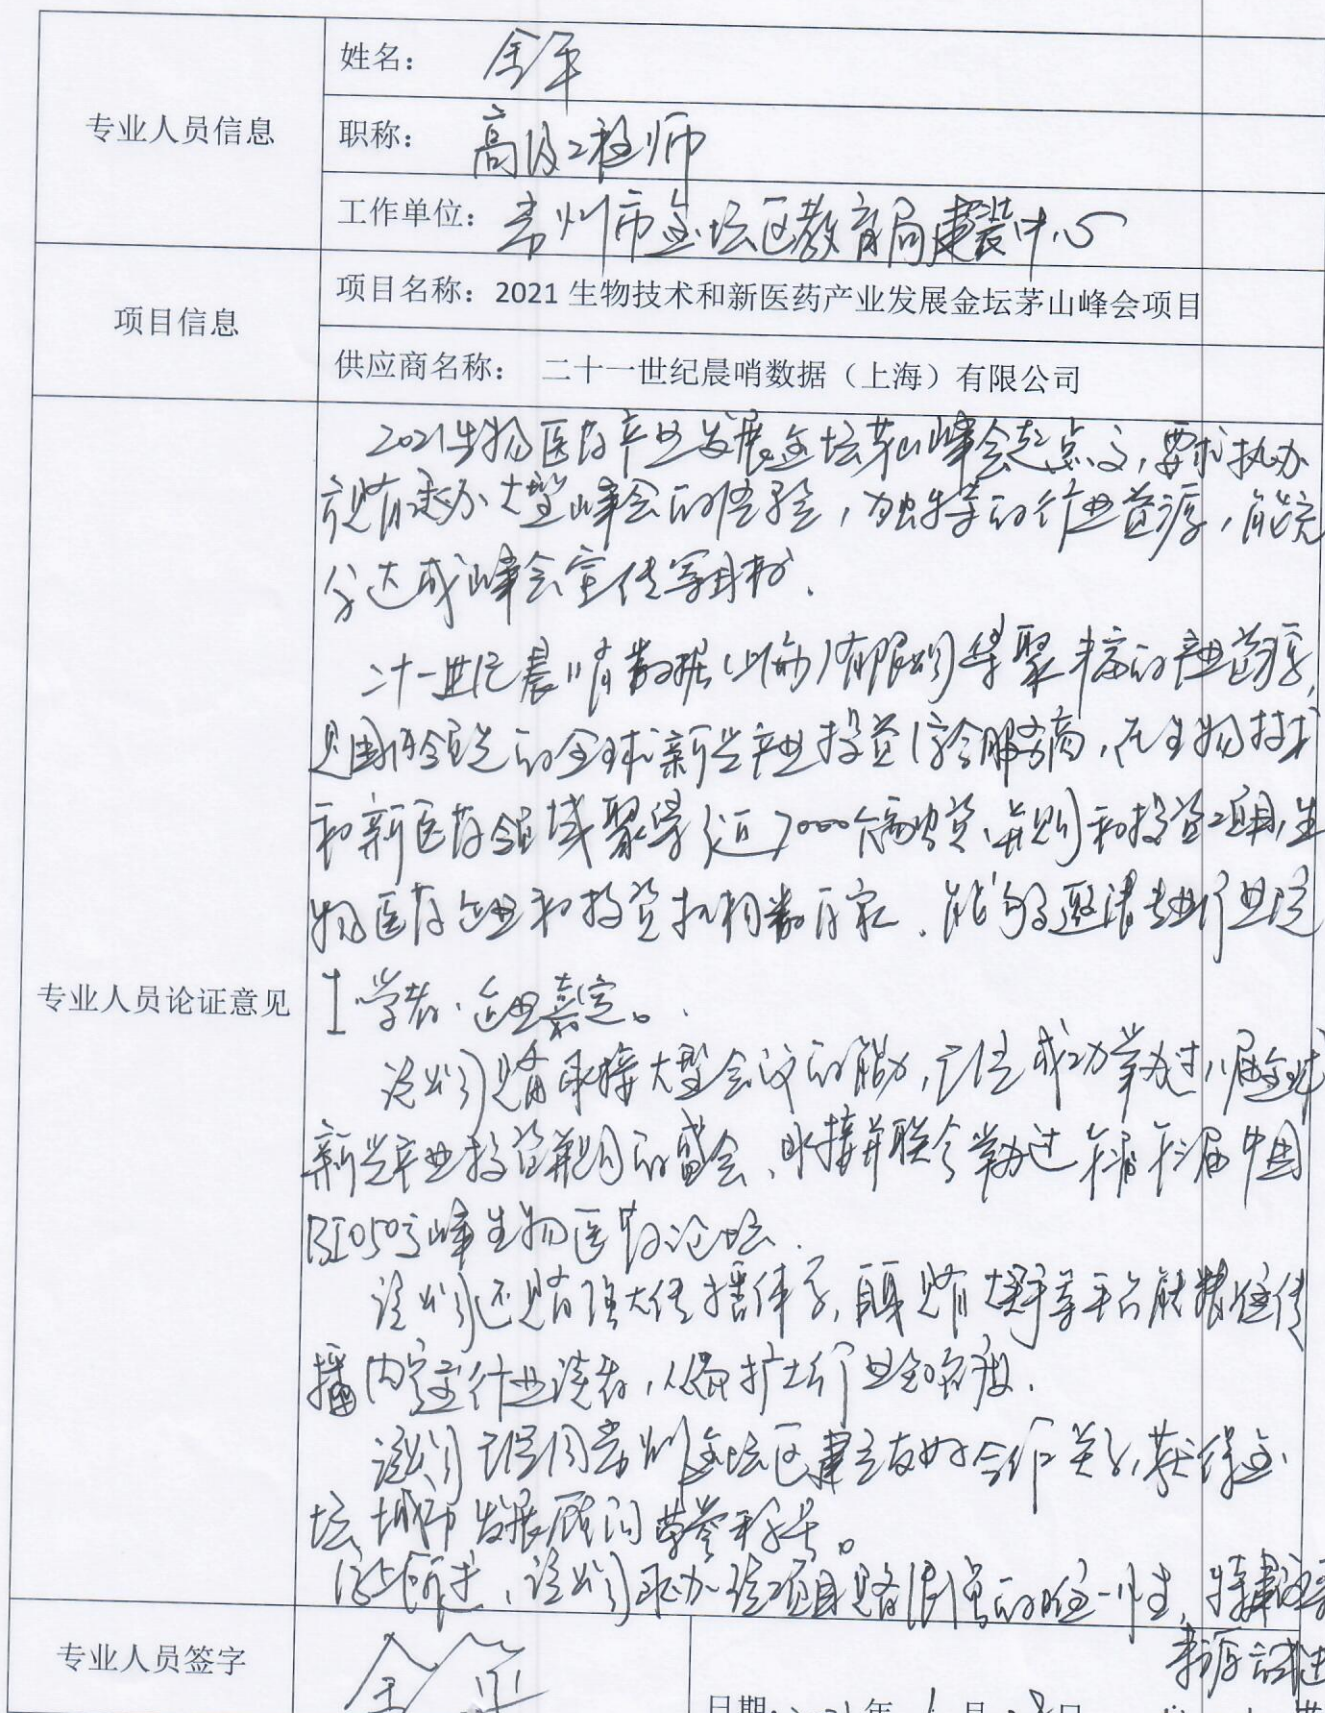 专业人员信息
姓名: 余平
职称: 高级工程师
工作单位: 常州市金坛区教育局建装中心
项目信息
项目名称: 2021 生物技术和新医药产业发展金坛茅山峰会项目
供应商名称: 二十一世纪晨哨数据（上海）有限公司
专业人员论证意见
2021生物医药产业发展金坛茅山峰会起点高,要求执办
方具有承办大型峰会的经验,独特的行业资源,能充
分达成峰会宣传等目标.
二十一世纪晨哨数据(上海)有限公司集聚丰富的产业资源,
是国内领先的全球新兴产业投资综合服务商,在生物技术
和新医药领域聚集近7000个融资、并购和投资项目,生
物医药企业和投资机构数百家、能够邀请专业行业院
士、学者、企业嘉宾。
该公司具有承接大型会议的能力,已经成功举办过八届全球
新兴产业投资并购的盛会、承接并联合举办过 中国
BIO50高峰生物医药论坛.
该公司还具有强大传播体系,自身具有 平台能精准传
播内容至行业读者,从而扩大行业知名度.
该公司已经同常州金坛区建立友好合作关系,获得金
坛城市发展顾问荣誉称号。
综上所述,该公司承办该项目具有很强的唯一性,特建议
来源
专业人员签字
余平
日期: 年 月 日